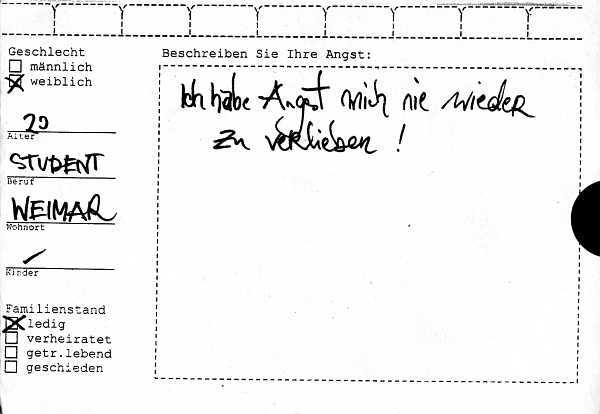 Geschlecht
männlich
weiblich
20
Alter
STUDENT
Beruf
WEIMAR
Wohnort
Kinder
Familienstand
ledig
verheiratet
getr.lebend
geschieden
Beschreiben Sie Ihre Angst:
Ich habe Angst mich nie wieder
zu verlieben !